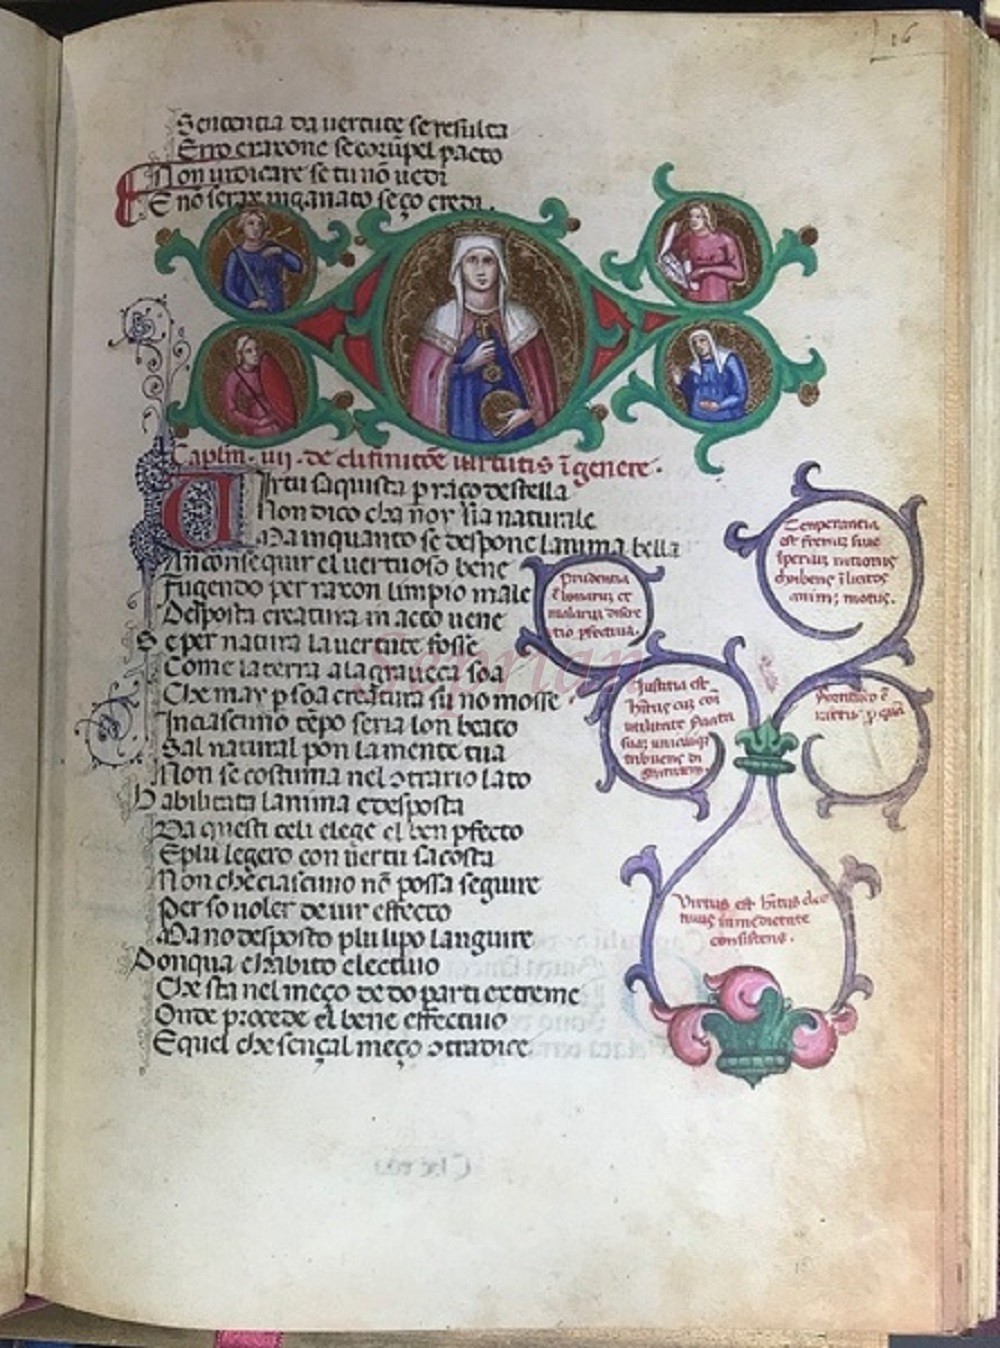 16
Sentencia da vertute se resulta
Erro e raxone se corūpel pacto
Non iudicare se tu nō uedi
E nō serax inganato se ço credi.
Caplm. iij. de difinitōe uirtutis ī genere.
Virtu saquista p raço de stella
Non dico cha noy sia naturale
Ma in quanto se despone lanima bella
An consequir el uertuoso bene
Fugendo per raxon limpio male
Desposta creatura in acto uene
Se per natura la uertute fosse
Come la terra a la graueça soa
Che may p soa creatura si no mosse
In ciascuno tēpo seria lon beato
Sal natural pon la mente tua
Non se costuma nel ɔtrario lato
Habilitata lanima e desposta
Da questi celi elege el ben pfecto
E plu legero con uertu sacosta
Non che ciascuno nō possa seguire
Per so uoler deuir effecto
Ma no desposto plu lipo languire
Donqua e habito electiuo
Che sta nel meço de do parti extreme
Onde procede el bene effectiuo
E quel che sençal meço ɔtradice.
Temperancia
est frenum siue
īperium rationis
chibens īlicitos
animi motus.
Prudentia
ē bonarum et
malarum discre
tio pfectiua.
Justicia est
hītus
Fortitudo ē
uirtus p quā
Virtus est hītus elec
tiuus in medietate
consistens.
Seprian